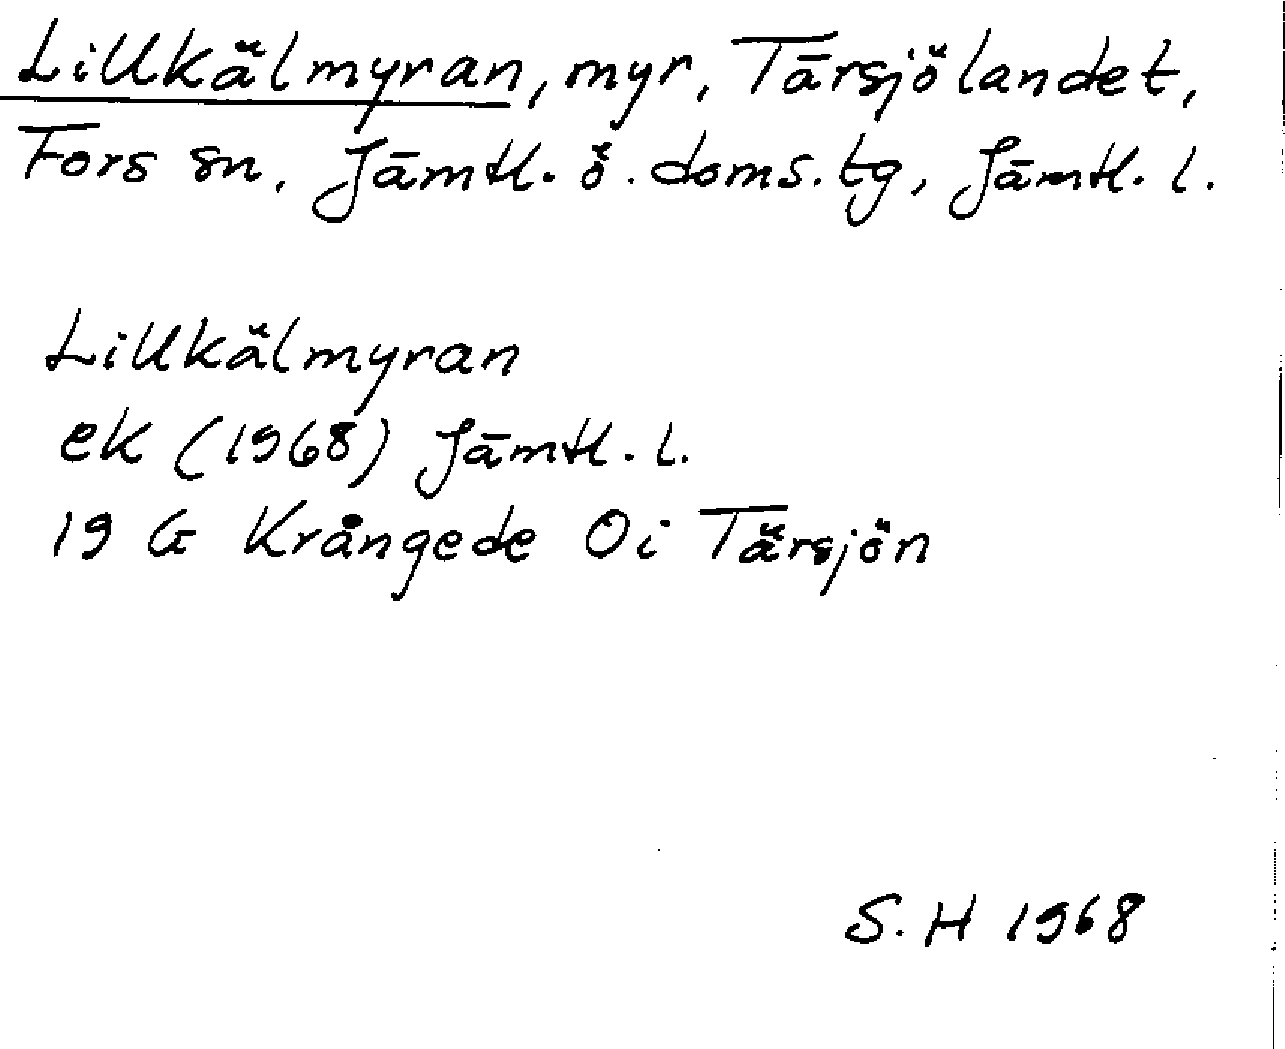 Lillkälmyran, myr, Tärsjölandet,
Fors sn, Jämtl. ö. doms. tg, Jämtl. l.
Lillkälmyran
ek (1968) Jämtl. l.
19 G Krångede Oi Tärsjön
S. H 1968